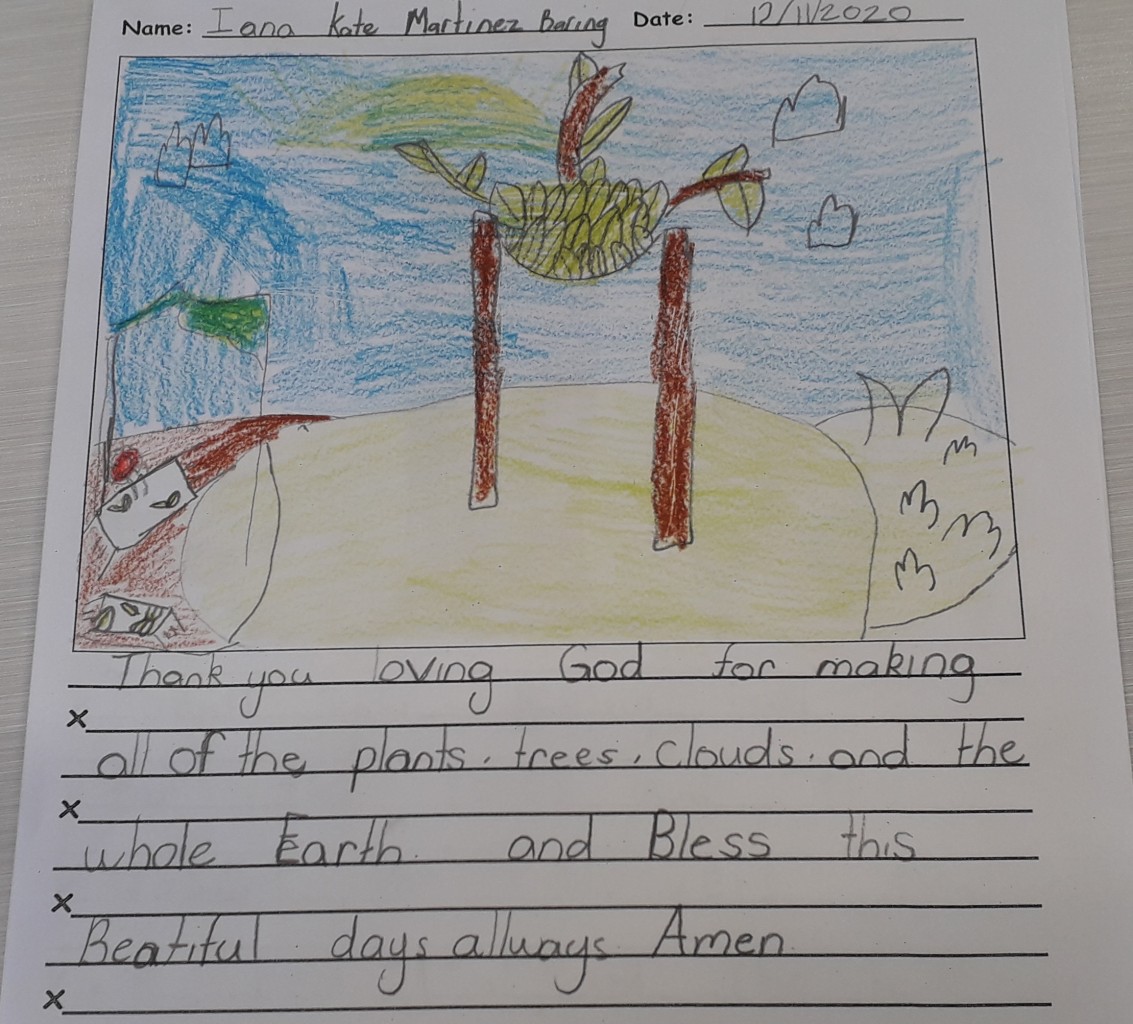 Name: Iana Kate Martinez Baring Date: 12/11/2020
Thank you loving God for making
x
all of the plants, trees, clouds. and the
x
whole Earth. and Bless this
x
Beatiful days allways Amen
x